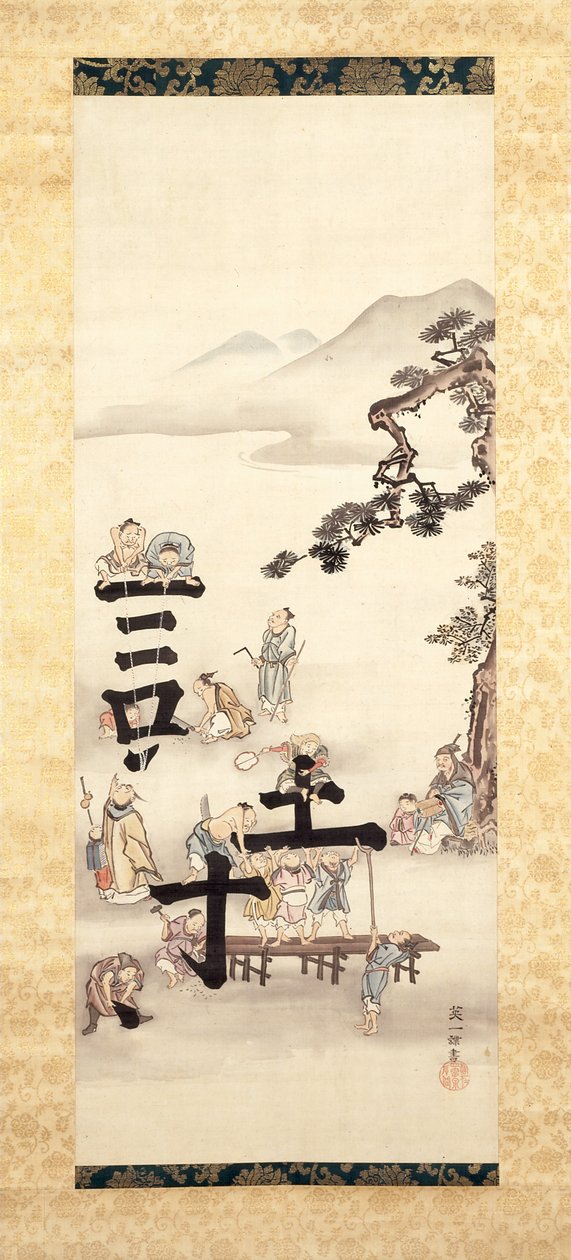 詩
英一蝶書